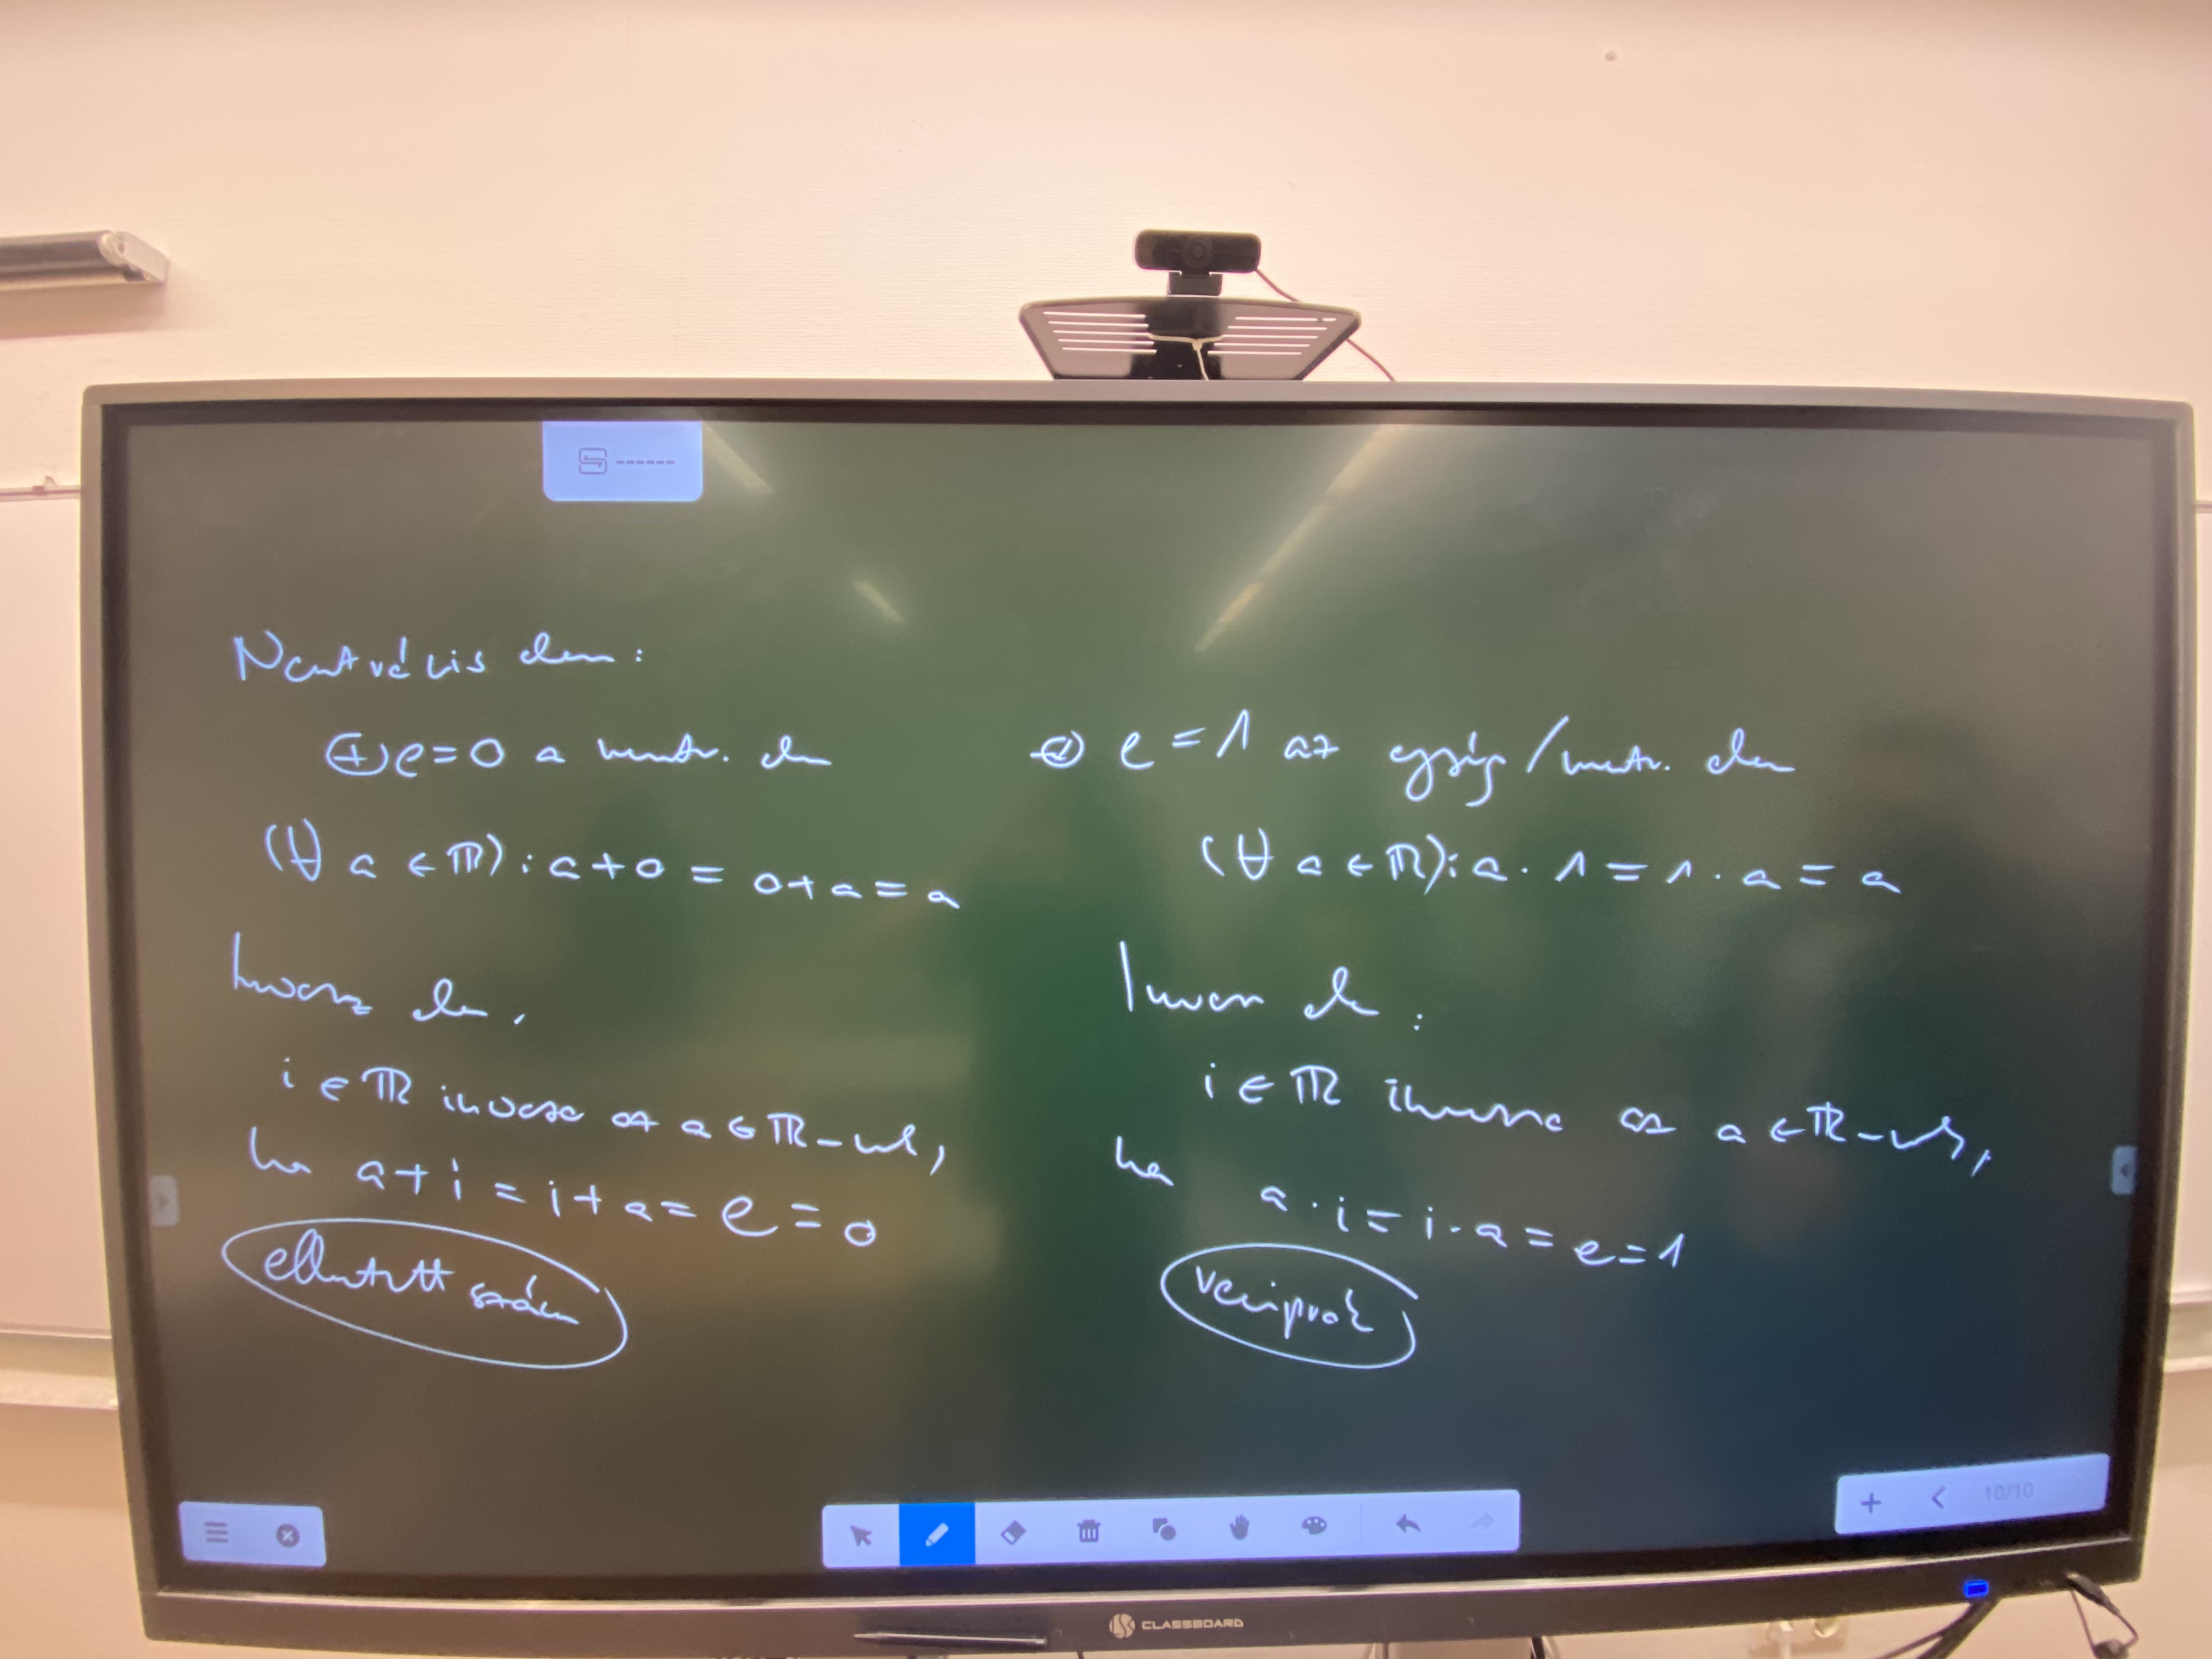 Neutrális elem:
⊕ e=0 a neutr. elem
(∀ a ∈ ℝ): a+0 = 0+a = a
Inverz elem,
i ∈ ℝ inverze az a ∈ ℝ-nek,
ha a+i = i+a = e = 0
ellentett szám
⊙ e = 1 az egység/neutr. elem
(∀ a ∈ ℝ): a · 1 = 1 · a = a
Inverz elem:
i ∈ ℝ inverze az a ∈ ℝ-nek,
ha a · i = i · a = e = 1
reciprok
10/10
CLASSBOARD